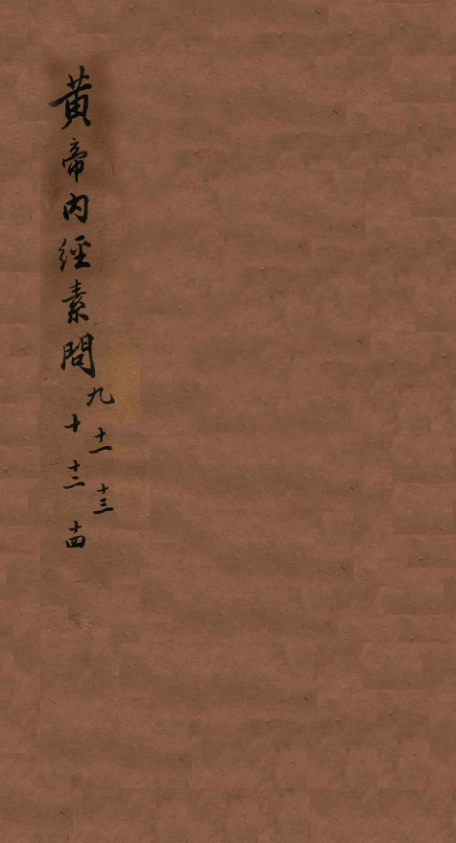 黄帝内經素問
九 十一 十三
十 十二 十四